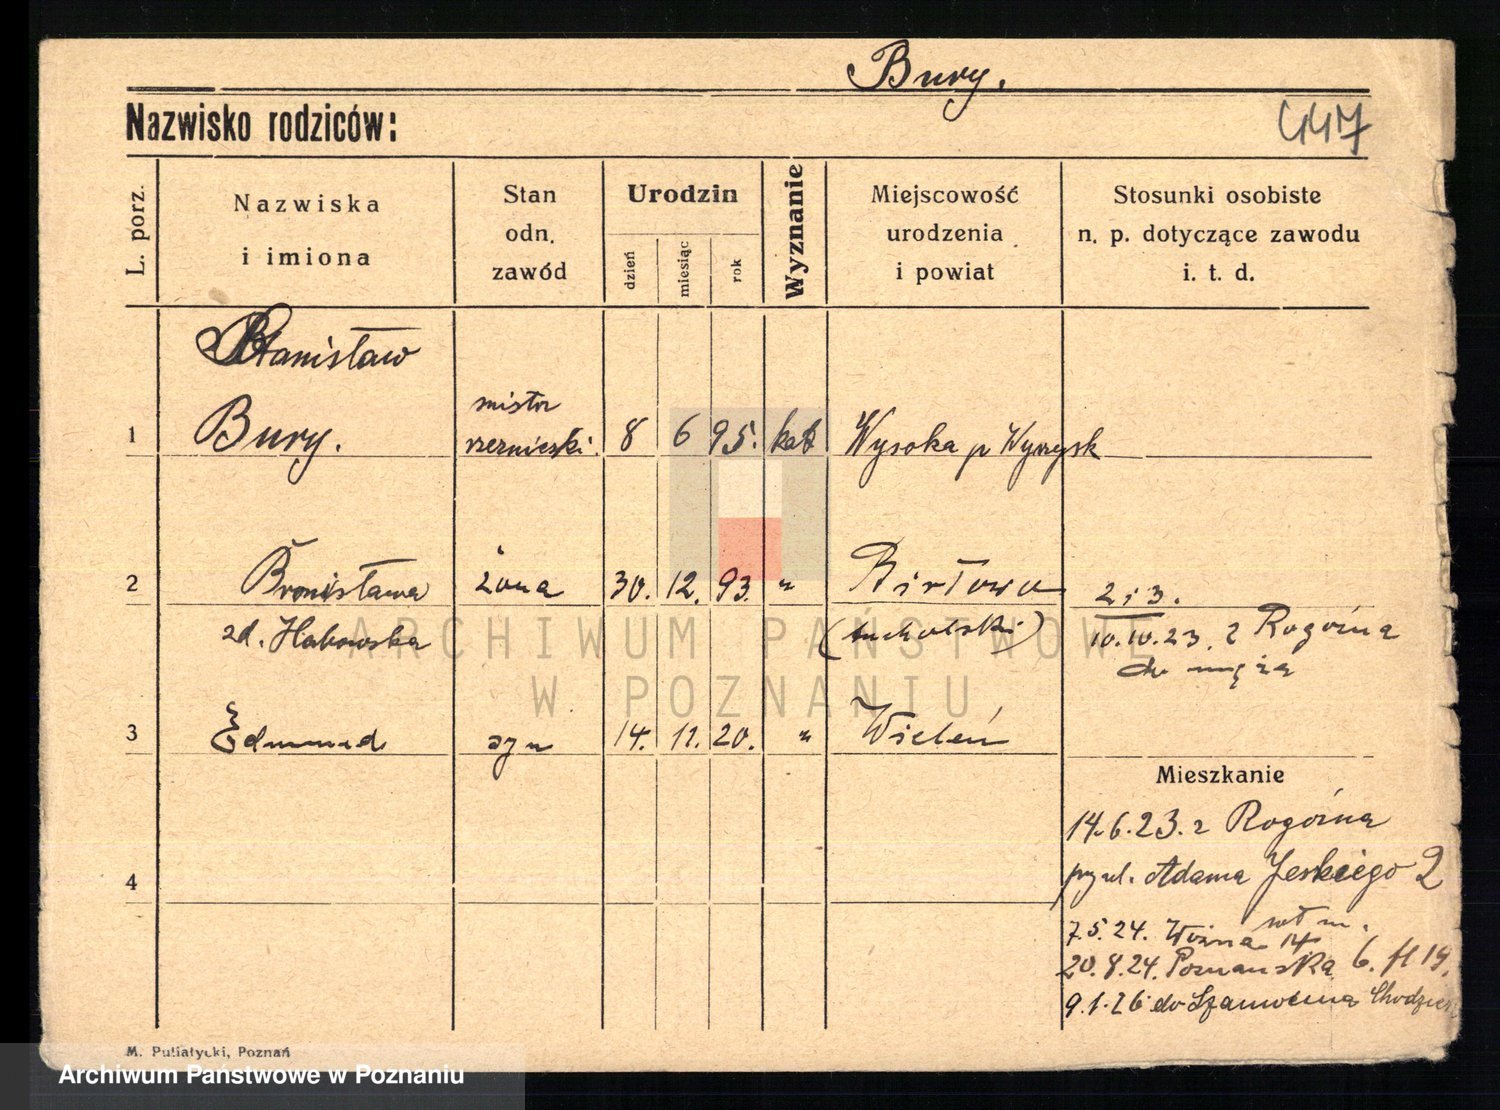 Bury.
447
Nazwisko rodziców:
L. porz.
Nazwiska
i imiona
Stan
odn.
zawód
Urodzin
dzień
miesiąc
rok
Wyznanie
Miejscowość
urodzenia
i powiat
Stosunki osobiste
n. p. dotyczące zawodu
i. t. d.
Stanisław
1 Bury. mistrz rzeźnicki. 8 6 95. kat Wysoka p Wyrzysk
2 Bronisława żona 30. 12. 93. "
2 i 3.
zd. (tucholski) 10.10.23. z Rogoźna
do męża
3 Edmund syn 14. 11. 20. " Wieleń
Mieszkanie
14.6.23. z Rogoźna
4
przy ul. Adama 2
wł m.
7.5.24. Woźna 14
20.8.24. Poznańska 6.
9.1.26 do Szamocina Chodzież
ARCHIWUM PAŃSTWOWE
W POZNANIU
M. Puliatycki, Poznań
Archiwum Państwowe w Poznaniu